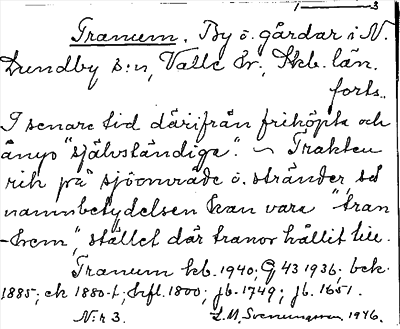 1 3
Tranum. By o. gårdar i N.
Lundby s:n, Valle hr., Skb. län.
forts.
I senare tid därifrån friköpta och
ånyo "självständiga". ~ Trakten
rik på sjöområde o. stränder, så
namnbetydelsen kan vara "tran
-hem", stället där tranor hållit till.
Tranum kb. 1940; G 43 1936; bek.
1885; ek 1880-t; hfl. 1800; jb. 1749; jb. 1651.
N:r 3. L. M. Svenungsson 1946.